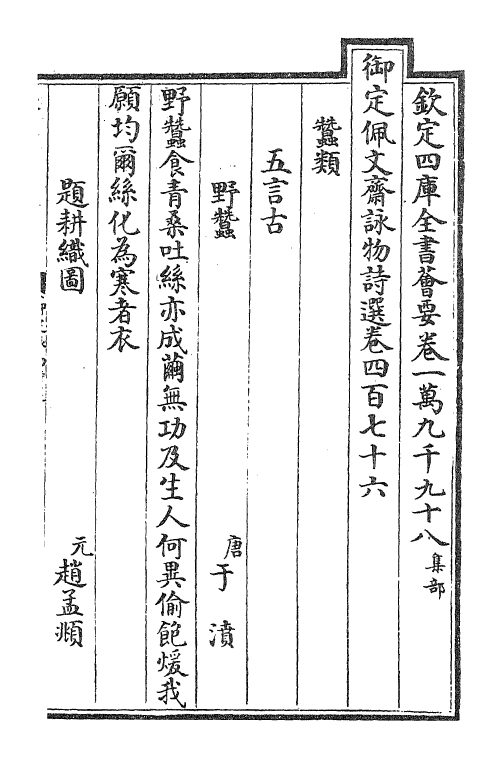 欽定四庫全書薈要卷一萬九千九十八 集部
御定佩文齋詠物詩選卷四百七十六
蠶類
五言古
野蠶 唐 于濆
野蠶食青桑吐絲亦成繭無功及生人何異偷飽煖我
願均爾絲化為寒者衣
題耕織圖 元 趙孟頫